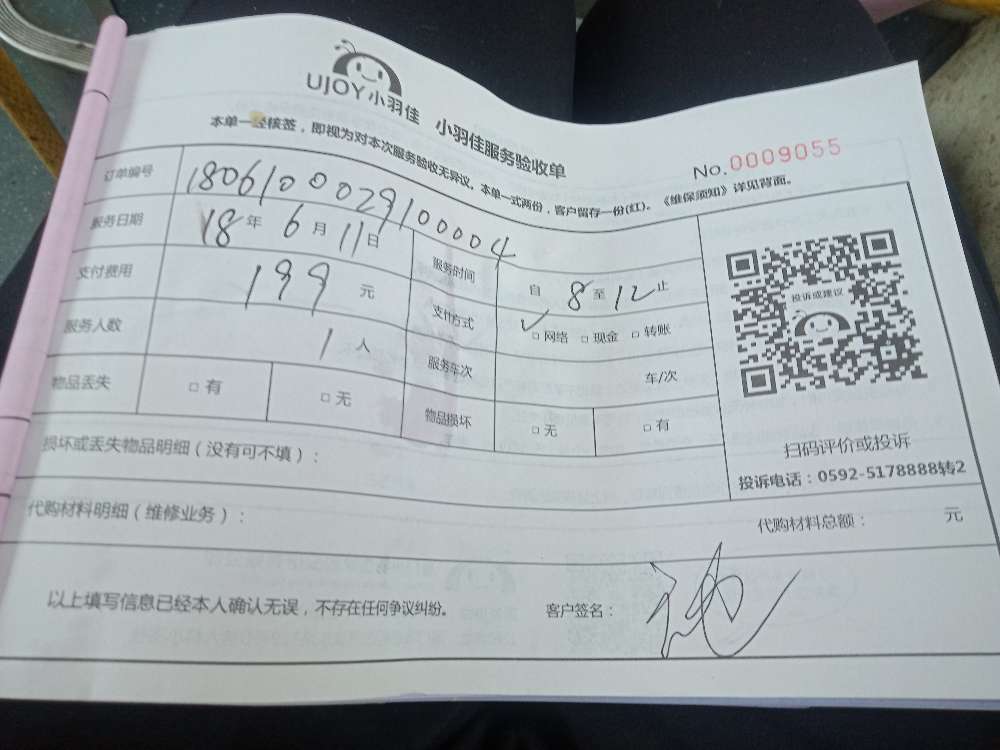 UJOY小羽佳 小羽佳服务验收单
No.0009055
本单一经核签，即视为对本次服务验收无异议。本单一式两份，客户留存一份(红)。《维保须知》详见背面。
订单编号 1806100029100004
服务日期 18年6月11日 服务时间 自8至12止
支付费用 199元 支付方式 ✓□网络 □现金 □转账
服务人数 1人 服务车次 车/次
物品丢失 □有 □无 物品损坏 □无 □有
投诉或建议
扫码评价或投诉
投诉电话：0592-5178888转2
损坏或丢失物品明细（没有可不填）：
代购材料明细（维修业务）： 代购材料总额： 元
以上填写信息已经本人确认无误，不存在任何争议纠纷。 客户签名：